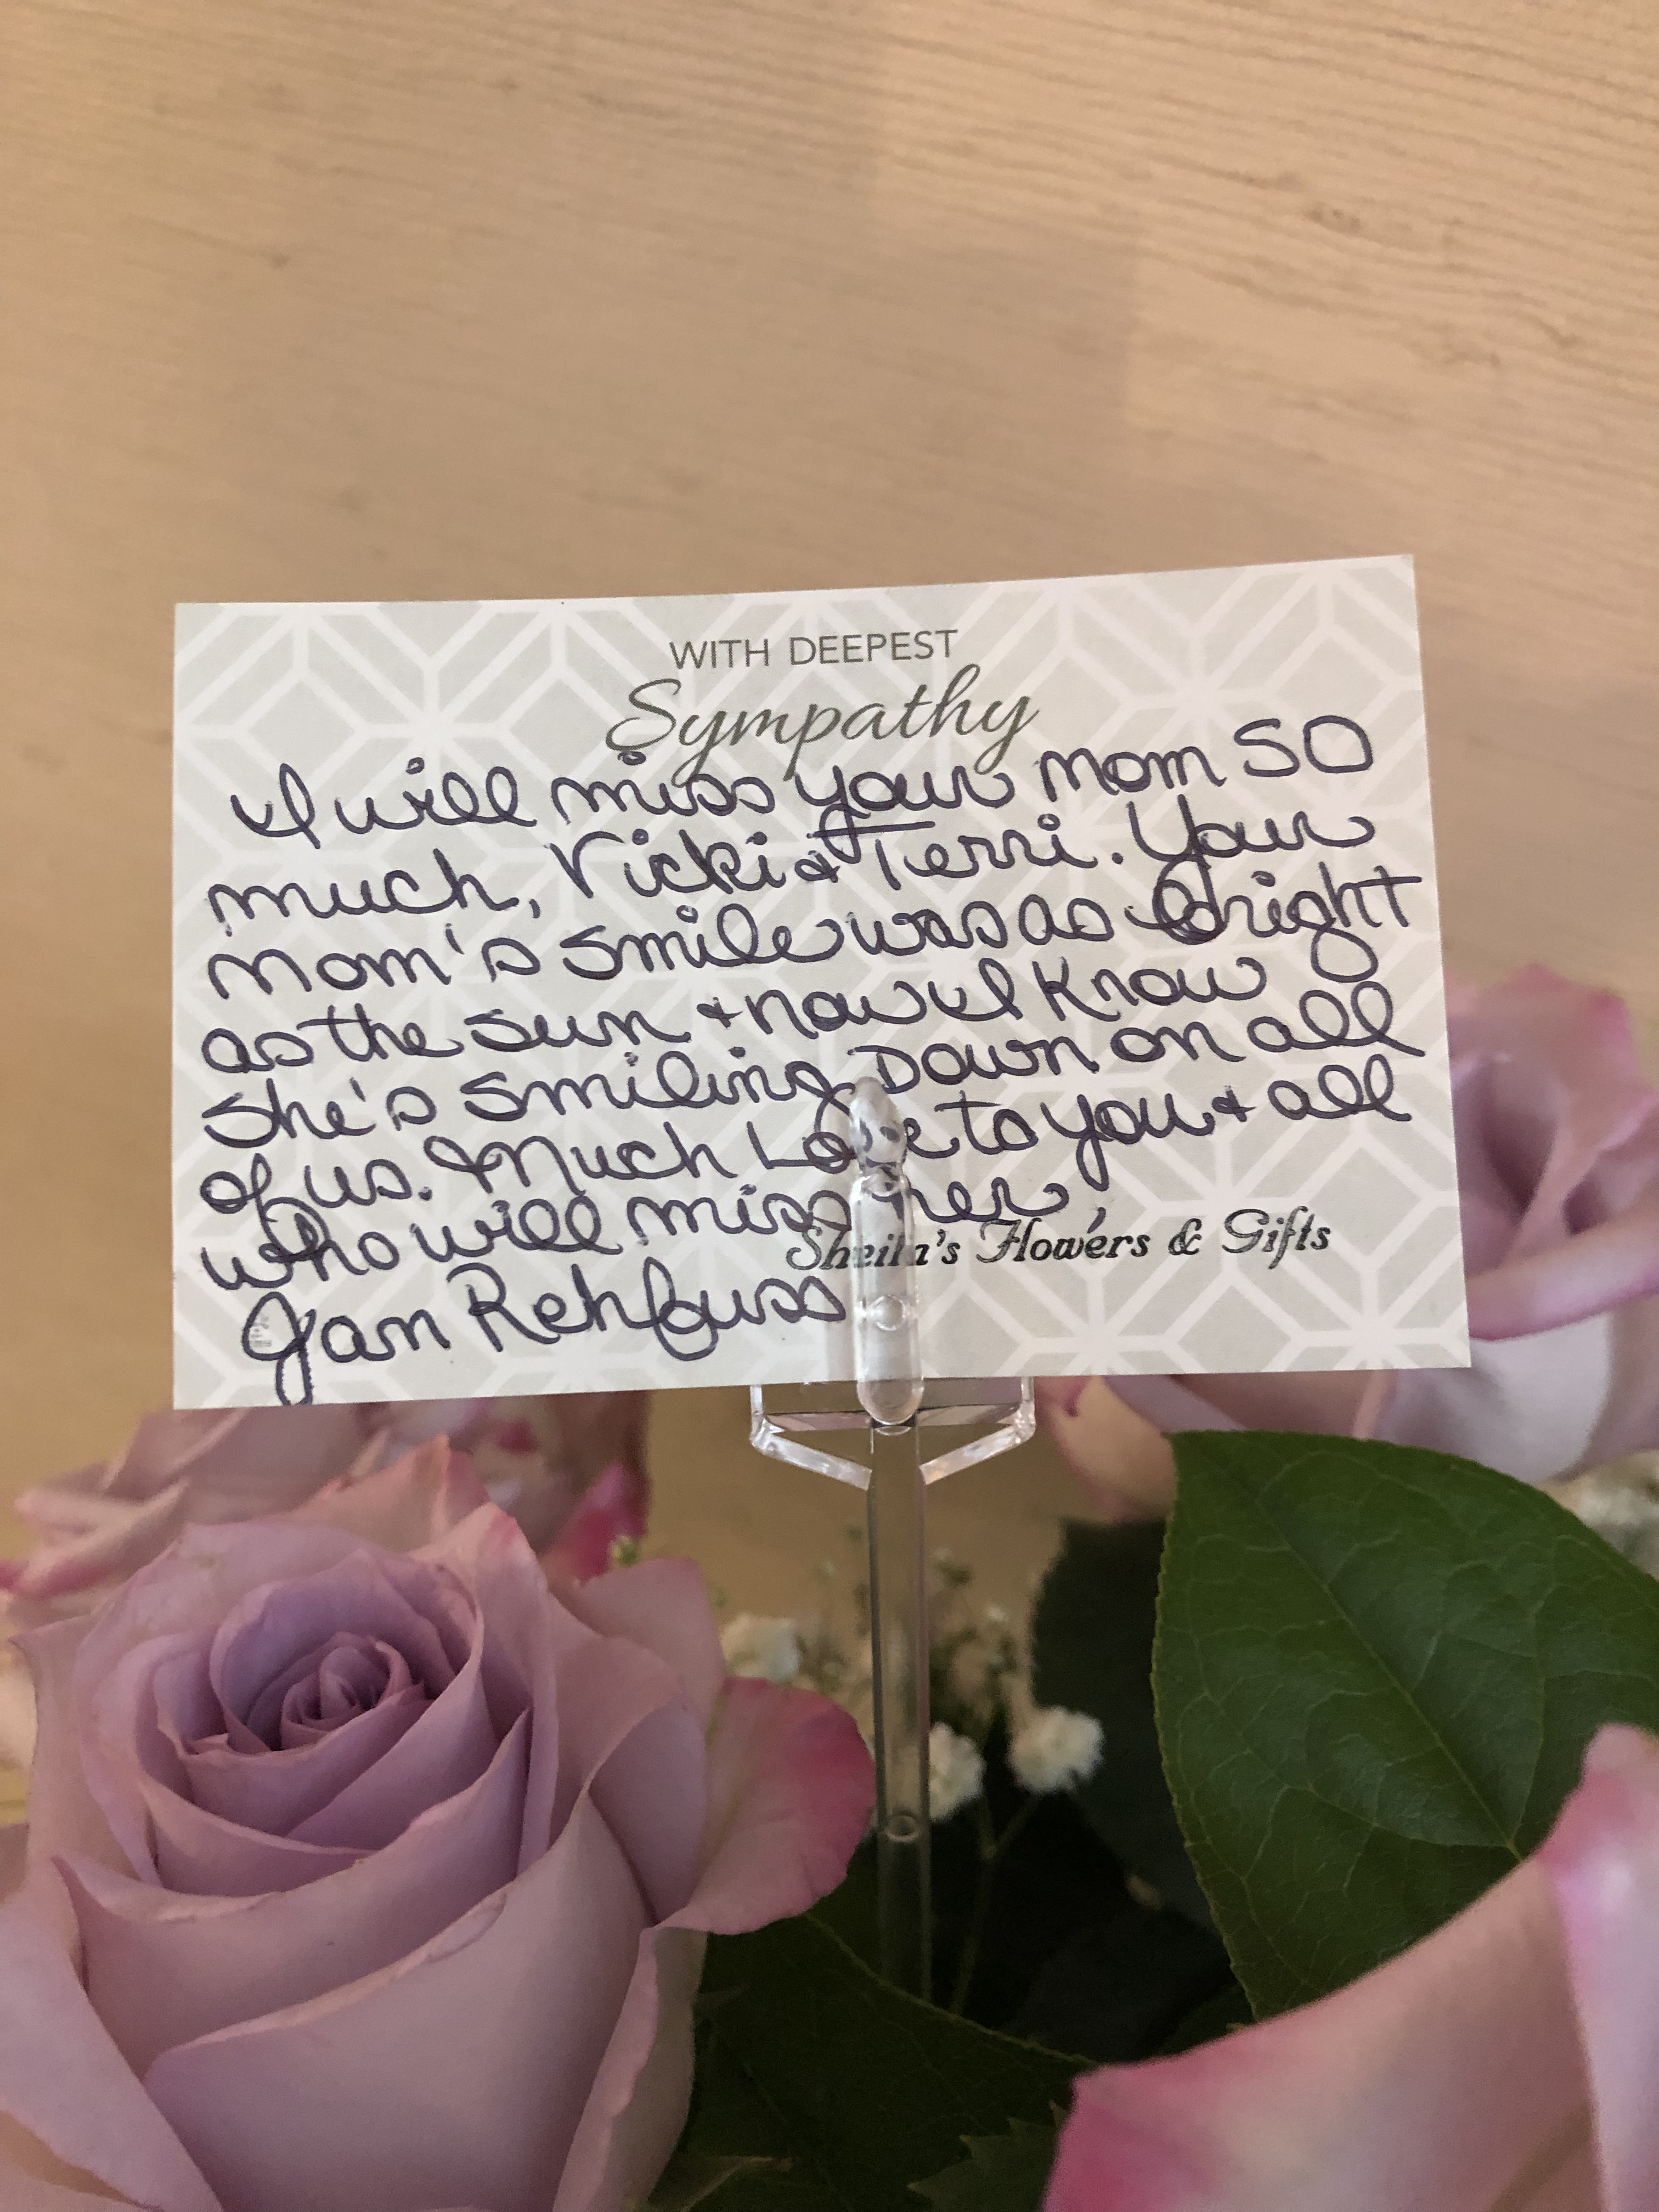 WITH DEEPEST
Sympathy
I will miss your mom SO
much, Vicki & Terri. Your
mom's smile was as bright
as the sun & now I know
she's smiling Down on all
of us. Much Love to you & all
who will miss her,
Sheila's Flowers & Gifts
Jan Rehfuss